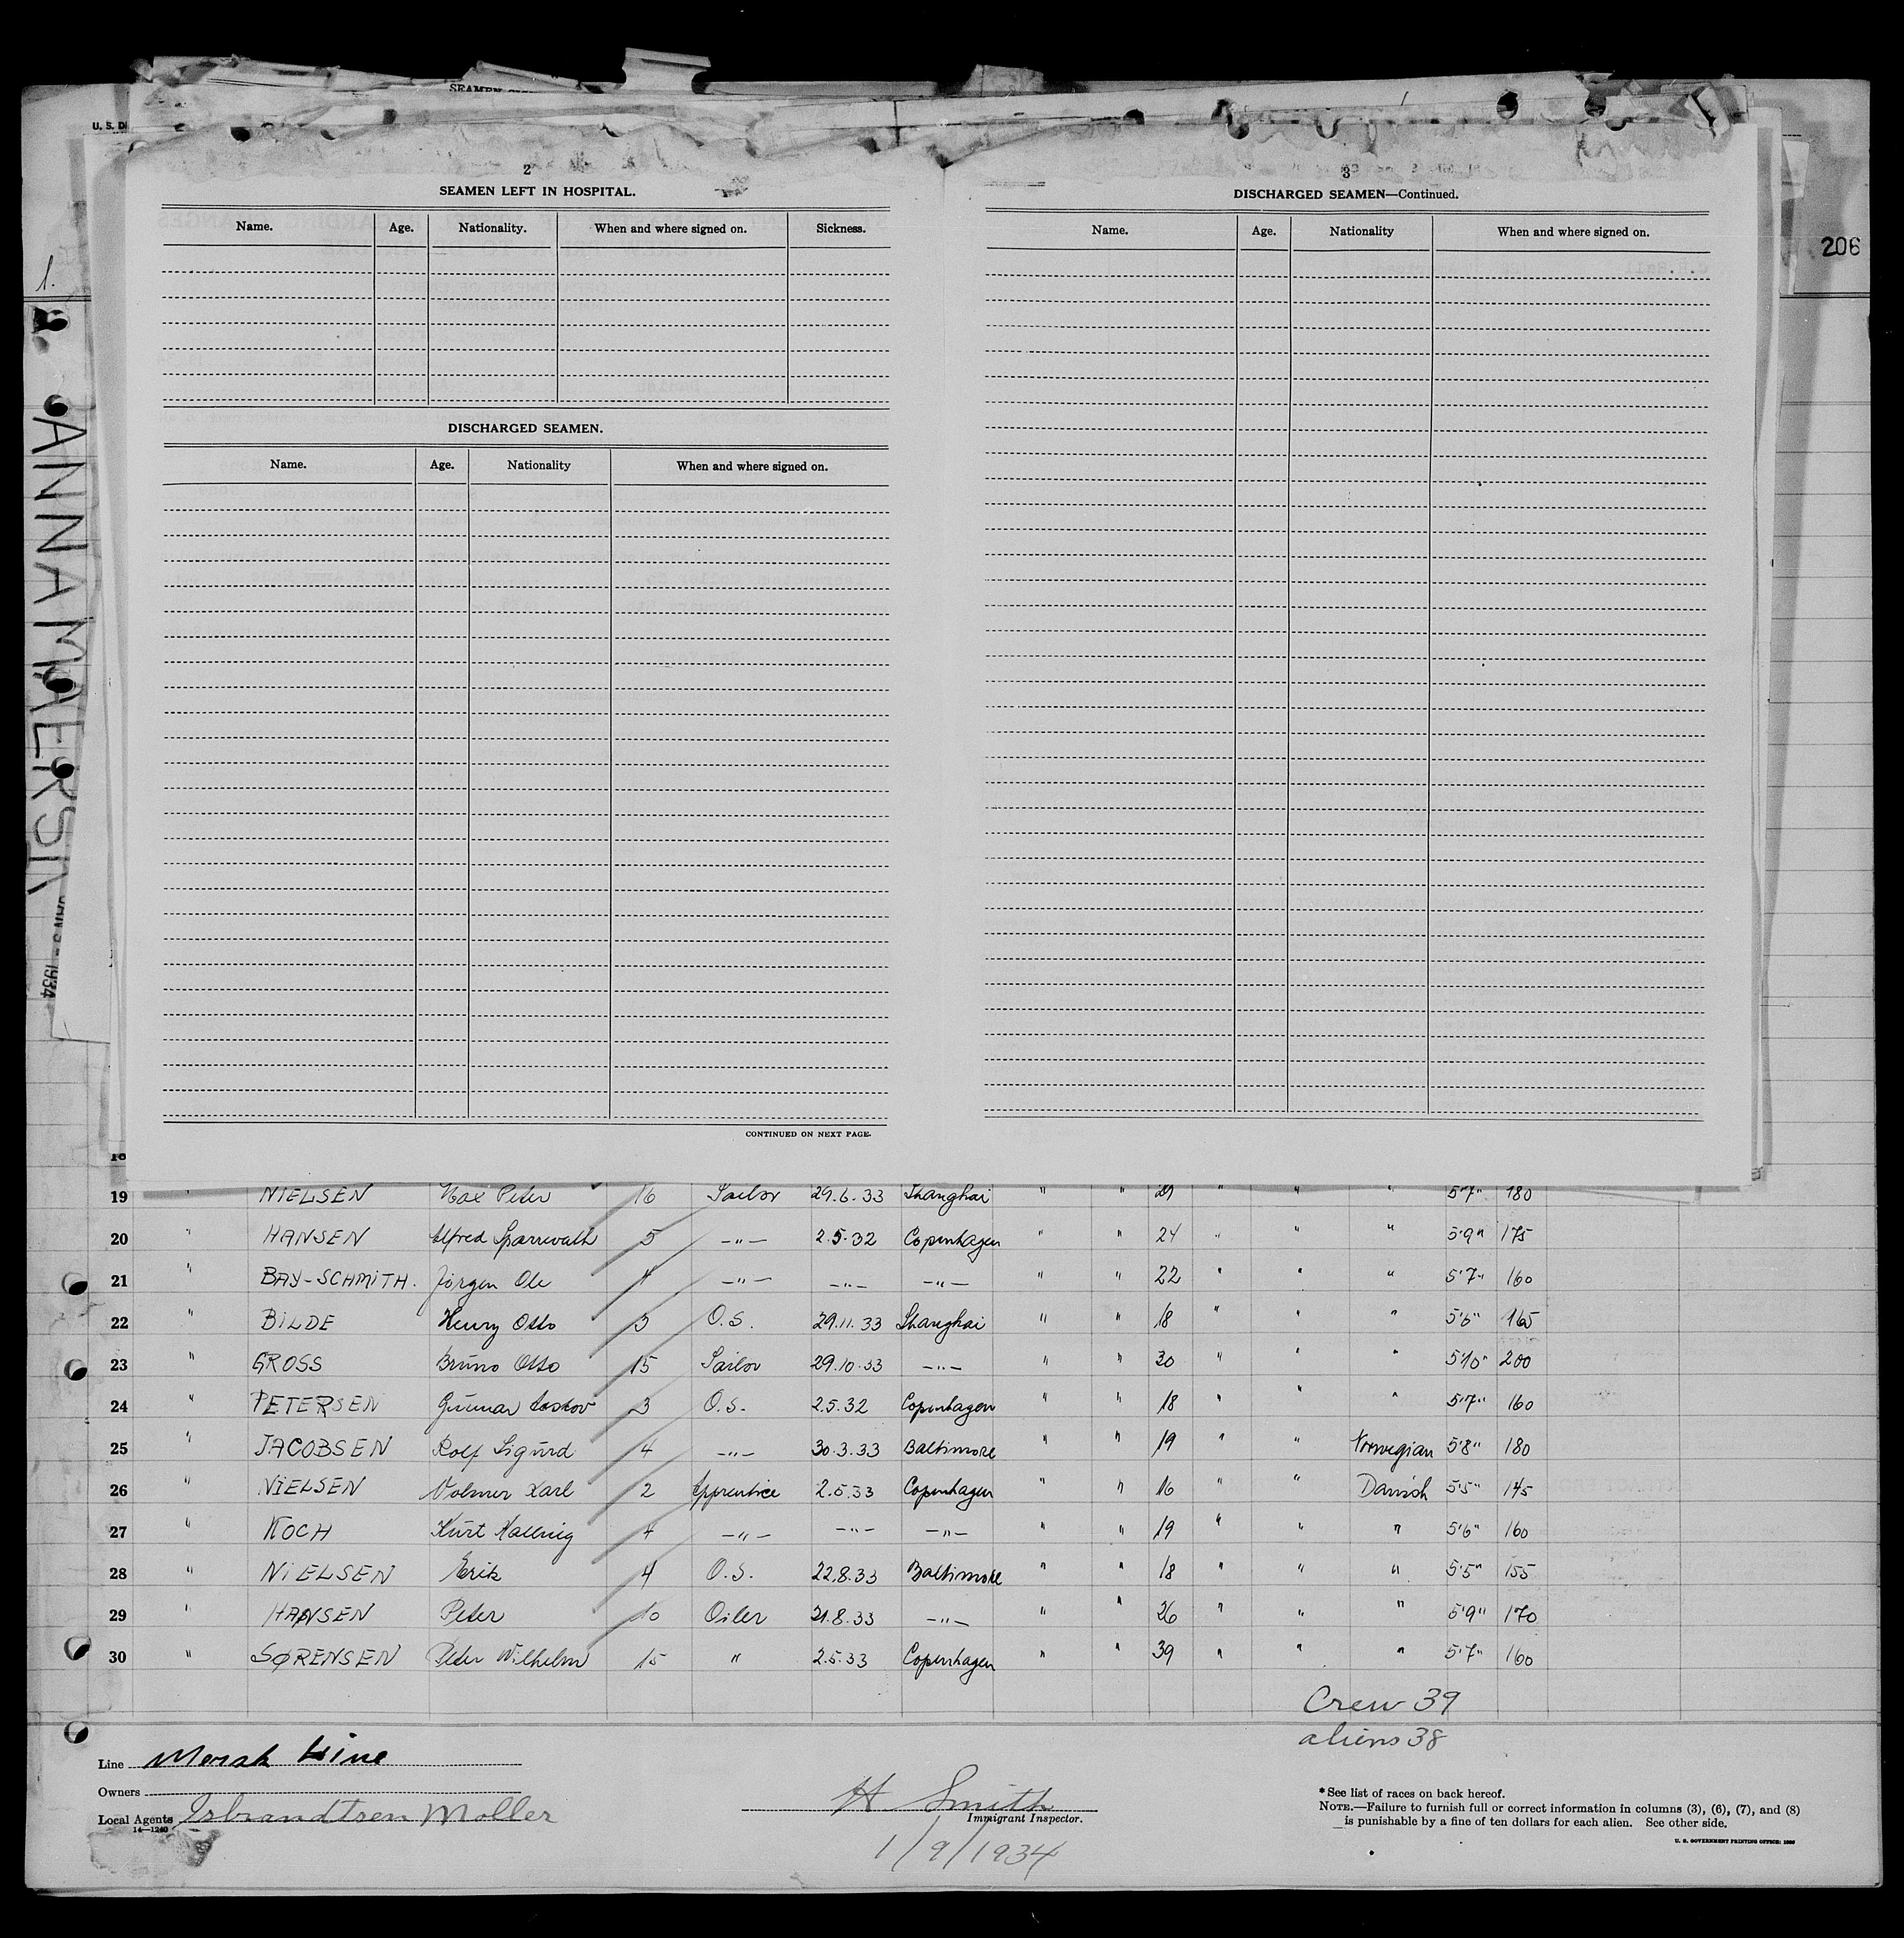 U. S. D
206
1.
ANNA MAERSK
1934
2
SEAMEN LEFT IN HOSPITAL.
Name. Age. Nationality. When and where signed on. Sickness.
DISCHARGED SEAMEN.
Name. Age. Nationality When and where signed on.
CONTINUED ON NEXT PAGE.
3
DISCHARGED SEAMEN—Continued.
Name. Age. Nationality When and where signed on.
18
19 " NIELSEN Max Peter 16 Sailor 29.6.33 Shanghai " " " " " 5'7" 180
20 " HANSEN Alfred 5 —"— 2.5.32 Copenhagen " " 24 " " " 5'9" 175
21 " BAY-SCHMITH. Jörgen Ole 4 —"— —"— —"— " " 22 " " " 5'7" 160
22 " BILDE Henry Otto 3 O.S. 29.11.33 Shanghai " " 18 " " " 5'6" 165
23 " GROSS Bruno Otto 15 Sailor 29.10.33 —"— " " 30 " " " 5'10" 200
24 " PETERSEN Gunnar 3 O.S. 2.5.32 Copenhagen " " 18 " " " 5'7" 160
25 " JACOBSEN Rolf Sigurd 4 —"— 30.3.33 Baltimore " " 19 " " Norwegian 5'8" 180
26 " NIELSEN Volmer Karl 2 Apprentice 2.5.33 Copenhagen " " 16 " " Danish 5'5" 145
27 " KOCH Kurt 4 —"— —"— —"— " " 19 " " " 5'6" 160
28 " NIELSEN Erik 4 O.S. 22.8.33 Baltimore " " 18 " " " 5'5" 155
29 " HANSEN Peter 10 Oiler 21.8.33 —"— " " 26 " " " 5'9" 170
30 " SØRENSEN Peter Wilhelm 15 " 2.5.33 Copenhagen " " 39 " " " 5'7" 160
Crew 39
aliens 38
Line Mersk Line
Owners
Local Agents Isbrandtsen Moller
14—1240
H Smith
Immigrant Inspector.
1/9/1934
* See list of races on back hereof.
NOTE.—Failure to furnish full or correct information in columns (3), (6), (7), and (8)
is punishable by a fine of ten dollars for each alien. See other side.
U. S. GOVERNMENT PRINTING OFFICE: 1930